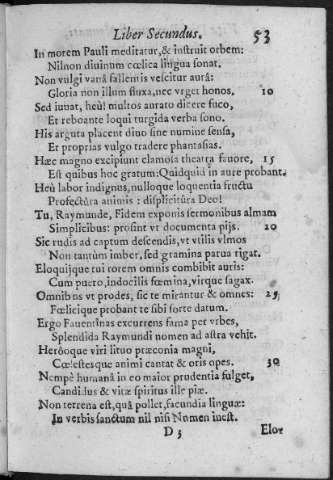 Liber Secundus. 53
In morem Pauli meditatur, & instruit orbem:
Nil non diuinum cœlica lingua sonat.
Non vulgi vanâ fallentis vescitur aurâ:
Gloria non illum fluxa, nec vrget honos. 10
Sed iuuat, heù! multos aurato dicere fuco,
Et reboante loqui turgida verba sono.
His arguta placent diuo sine numine sensa,
Et proprias vulgo tradere phantasias.
Hæc magno excipiunt clamosa theatra fauore, 15
Est quibus hoc gratum: Quidquid in aure probant.
Heù labor indignus, nulloque loquentia fructu
Profectura animis: displicitûra Deo!
Tu, Raymunde, Fidem exponis sermonibus almam
Simplicibus: prosint vt documenta pijs. 20
Sic rudis ad captum descendis, vt vtilis vlmos
Non tantùm imber, sed gramina parua rigat.
Eloquijque tui rorem omnis combibit auris:
Cum puero, indocilis fœmina, virque sagax.
Omnibus vt prodes, sic te mirantur & omnes: 25
Fœlicique probant te sibi sorte datum.
Ergo Fauentinas excurrens fama per vrbes,
Splendida Raymundi nomen ad astra vehit.
Herôoque viri lituo præconia magni,
Cœlestesque animi cantat & oris opes. 30
Nempè humanâ in eo maior prudentia fulget,
Candidus & vitæ spiritus ille piæ.
Non terrena est, quâ pollet, facundia linguæ:
In verbis sanctum nil nisi Numen inest.
D 3 Eloz